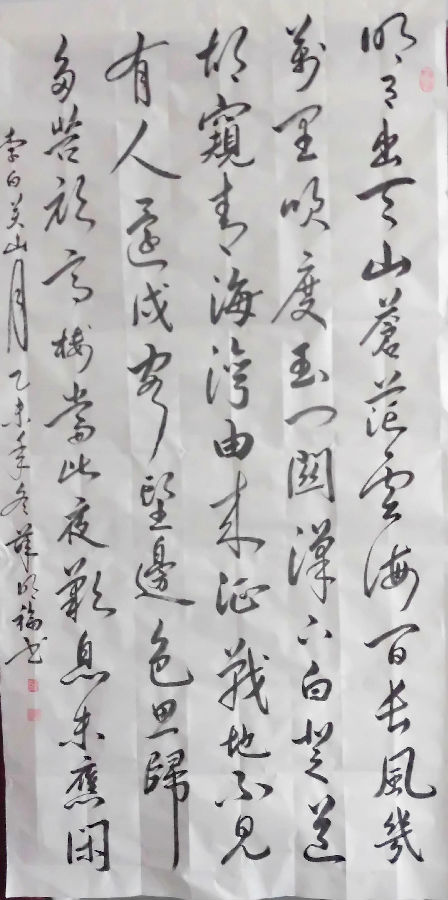 明月出天山蒼茫雲海間長風幾
萬里吹度玉門關漢下白登道
胡窺青海灣由來征戰地不見
有人還戍客望邊色思歸
多苦顏高樓當此夜歎息未應閑
李白关山月乙未年冬明福书